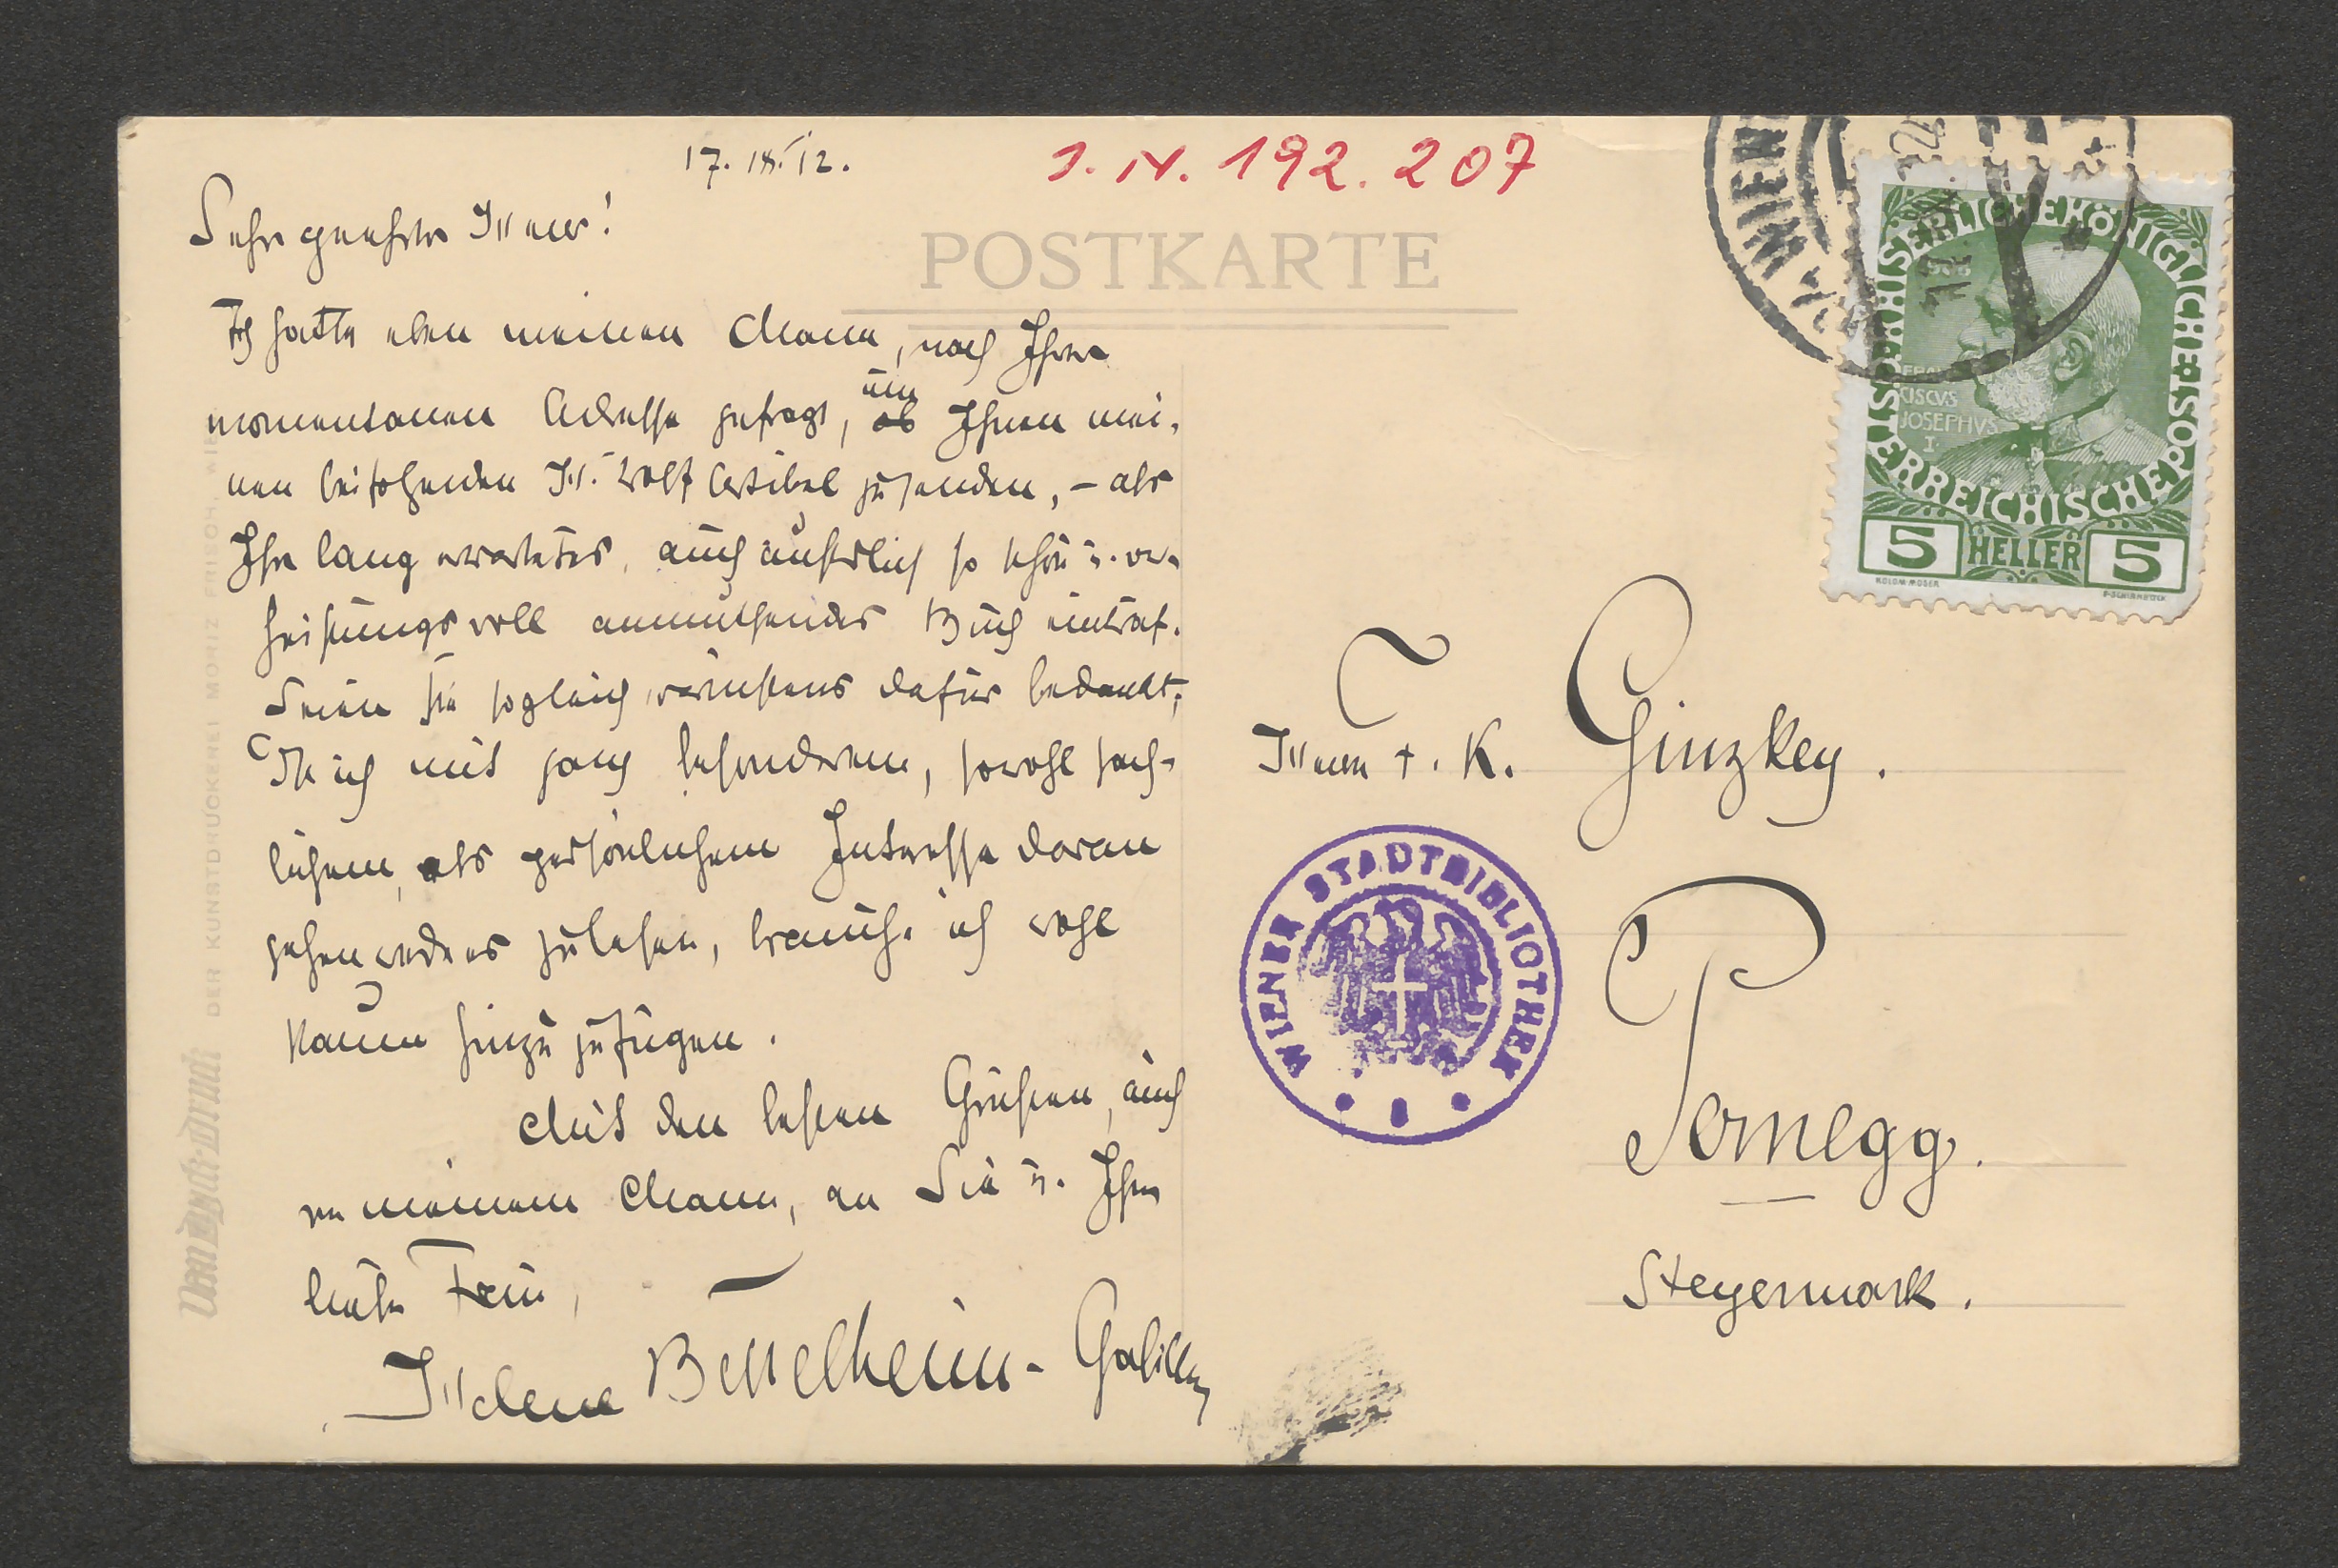 17. IX. 12.
I. N. 192.207
Sehr geehrter Herr!
POSTKARTE
Ich hatte eben meinen Mann, nach Ihrer
momentanen Adresse gefragt, um
ob Ihnen mei-
nen beifolgenden H. Wolf Artikel zu senden, – als
Ihr lang erwartetes, auch äußerlich so schön u. ver-
heißungsvoll anmuthendes Buch eintraf.
Seien Sie sogleich wärmstens dafür bedankt;
daß ich mit ganz besonderem, sowohl sach-
lichem, als persönlichem Interesse daran
gehen werde es zu lesen, brauche ich wohl
kaum hinzu zufügen.
Mit den besten Grüßen, auch
von meinem Mann, an Sie u. Ihre
liebe Frau,
Helene Bettelheim-Gabillon
Herrn F. K. Ginzkey.
Pernegg.
Steyermark.
WIENER STADTBIBLIOTHEK
WIEN
17.
KAISERLICHE KÖNIGLICHE
ÖSTERREICHISCHE POST
1908
FRANCISCVS
JOSEPHVS
I.
5 HELLER 5
KOLOM. MOSER
F. SCHIRNBÖCK
Van Dyck-Druck DER KUNSTDRUCKEREI MORIZ FRISCH, WIEN